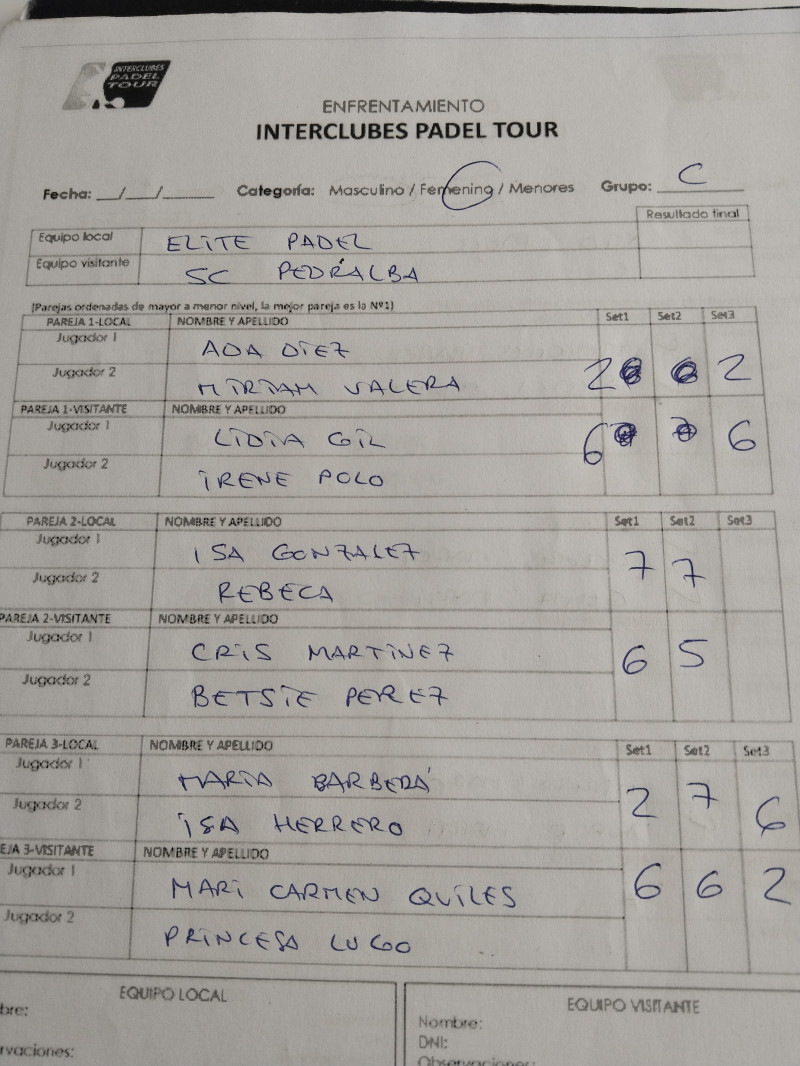 INTERCLUBES
PADEL
TOUR
ENFRENTAMIENTO
INTERCLUBES PADEL TOUR
Fecha: __/__/____ Categoría: Masculino / Femenino / Menores Grupo: C
Resultado final
Equipo local ELITE PADEL
Equipo visitante SC PEDRALBA
(Parejas ordenadas de mayor a menor nivel, la mejor pareja es la Nº1)
PAREJA 1-LOCAL NOMBRE Y APELLIDO Set1 Set2 Set3
Jugador 1 ADA DIEZ
Jugador 2 MIRIAM VALERA 2 2
PAREJA 1-VISITANTE NOMBRE Y APELLIDO
Jugador 1 LIDIA GIL 6 6
Jugador 2 IRENE POLO
PAREJA 2-LOCAL NOMBRE Y APELLIDO Set1 Set2 Set3
Jugador 1 ISA GONZALEZ 7 7
Jugador 2 REBECA
PAREJA 2-VISITANTE NOMBRE Y APELLIDO
Jugador 1 CRIS MARTINEZ 6 5
Jugador 2 BETSIE PEREZ
PAREJA 3-LOCAL NOMBRE Y APELLIDO Set1 Set2 Set3
Jugador 1 MARIA BARBERÁ 2 7 6
Jugador 2 ISA HERRERO
EJA 3-VISITANTE NOMBRE Y APELLIDO
Jugador 1 MARI CARMEN QUILES 6 6 2
Jugador 2 PRINCESA LUGO
EQUIPO LOCAL EQUIPO VISITANTE
bre: Nombre:
DNI:
rvaciones: Observaciones: